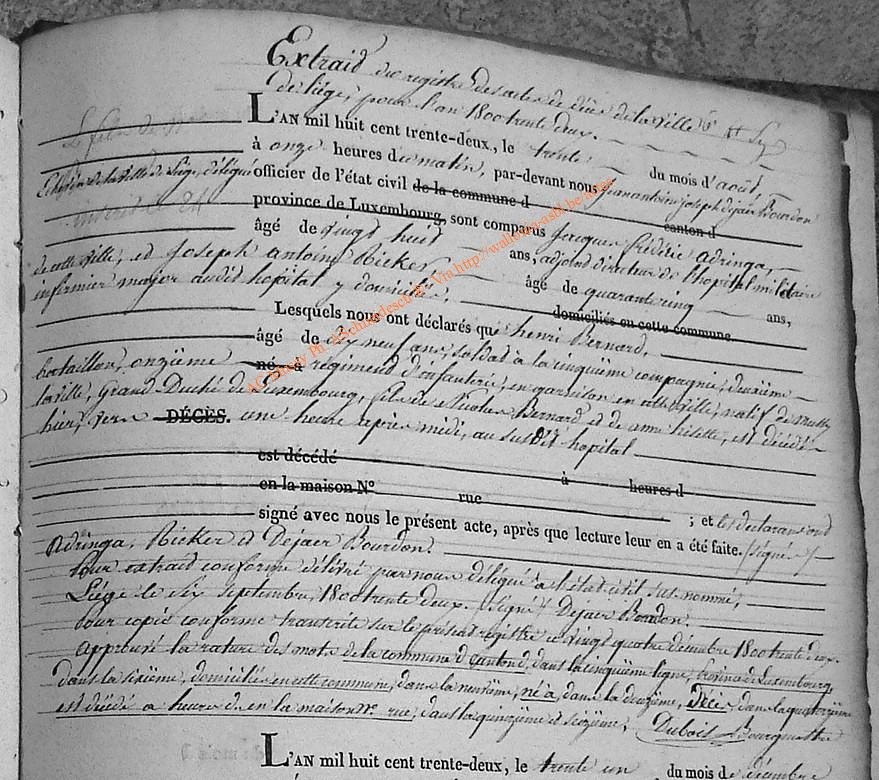 Extrait du registre des actes de décès de la ville
de Liège, pour l'an 1800 trente deux.
L'AN mil huit cent trente-deux, le trente du mois d'août,
à onze heures du matin, par-devant nous Jean antoine joseph dejaer Bourdon
Echevin de la ville de Liège, délégué officier de l'état civil de la commune d canton d
province de Luxembourg, sont comparus Jacques frédéric adringa,
âgé de vingt huit ans, adjoint directeur de l'hopital militaire
de cette ville, et joseph antoine Ricker âgé de quarante cinq ans,
infirmier major audit hopital y domicilié. domiciliés en cette commune.
Lesquels nous ont déclarés que henri Bernard,
âgé de dix neuf ans, soldat à la cinquième compagnie, deuxième
bataillon, onzième né à régiment d'infanterie, en garnison en cette ville, natif de
laville, Grand Duché de Luxembourg, fils de Nicolas Bernard et de anne lisette, est décédé
hier, vers DÉCÈS. une heure après midi, au susdit hopital
est décédé à heures d
en la maison N° rue ; et les déclarans ont
signé avec nous le présent acte, après que lecture leur en a été faite. (signé)
Adringa, Ricker et Dejaer Bourdon.
Pour extrait conforme délivré par nous délégué à l'état civil susnommé,
Liège le six septembre, 1800 trente deux. signé Dejaer Bourdon.
Pour copie conforme transcrite sur le présent registre ce vingt quatre décembre 1800 trente deux.
approuvé la rature des mots de la commune d canton d, dans la cinquième ligne, province de Luxembourg
dans la sixième, domiciliés en cette commune, dans la neuvième, né à, dans la douzième, Décès dans la quatorzième
est décédé à heures d en la maison N° rue, dans la quinzième et seizième, Dubois Bourguettre
L'AN mil huit cent trente-deux, le trente un du mois de décembre
AC Bihely Ph. d'Schrynderesch © - Via http://wallonia-asbl.be/actes